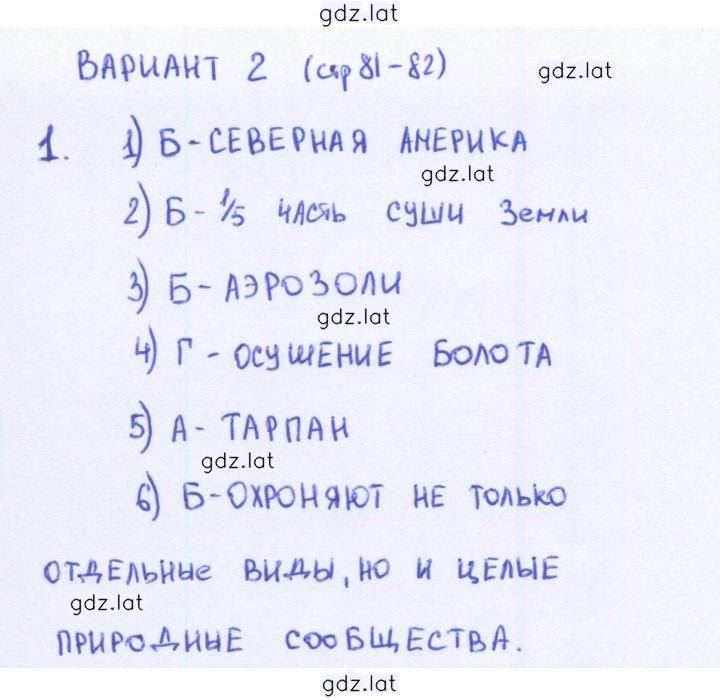 gdz.lat
ВАРИАНТ 2 (стр 81-82)
gdz.lat
1. 1) Б - СЕВЕРНАЯ АМЕРИКА
gdz.lat
2) Б - 1/5 ЧАСТЬ СУШИ Земли
3) Б - АЭРОЗОЛИ
gdz.lat
4) Г - ОСУШЕНИЕ БОЛОТА
5) А - ТАРПАН
gdz.lat
6) Б - ОХРОНЯЮТ НЕ ТОЛЬКО
ОТДЕЛЬНЫЕ ВИДЫ, НО И ЦЕЛЫЕ
gdz.lat
ПРИРОДНЫЕ СООБЩЕСТВА.
gdz.lat